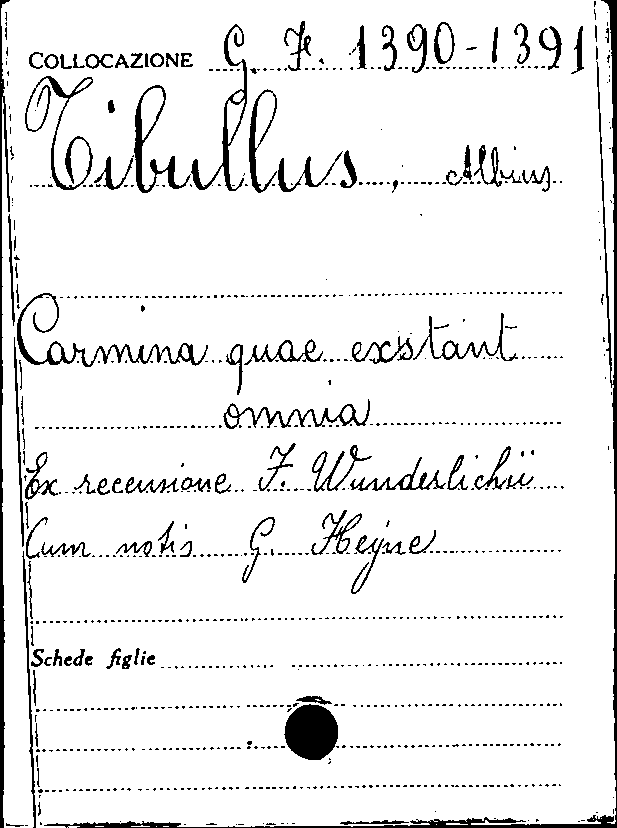 COLLOCAZIONE G. F. 1390-1391
Tibullus, Albius
Carmina quae exstant
omnia
Ex recensione F. Wunderlichii
Cum notis G. Heyne
Schede figlie